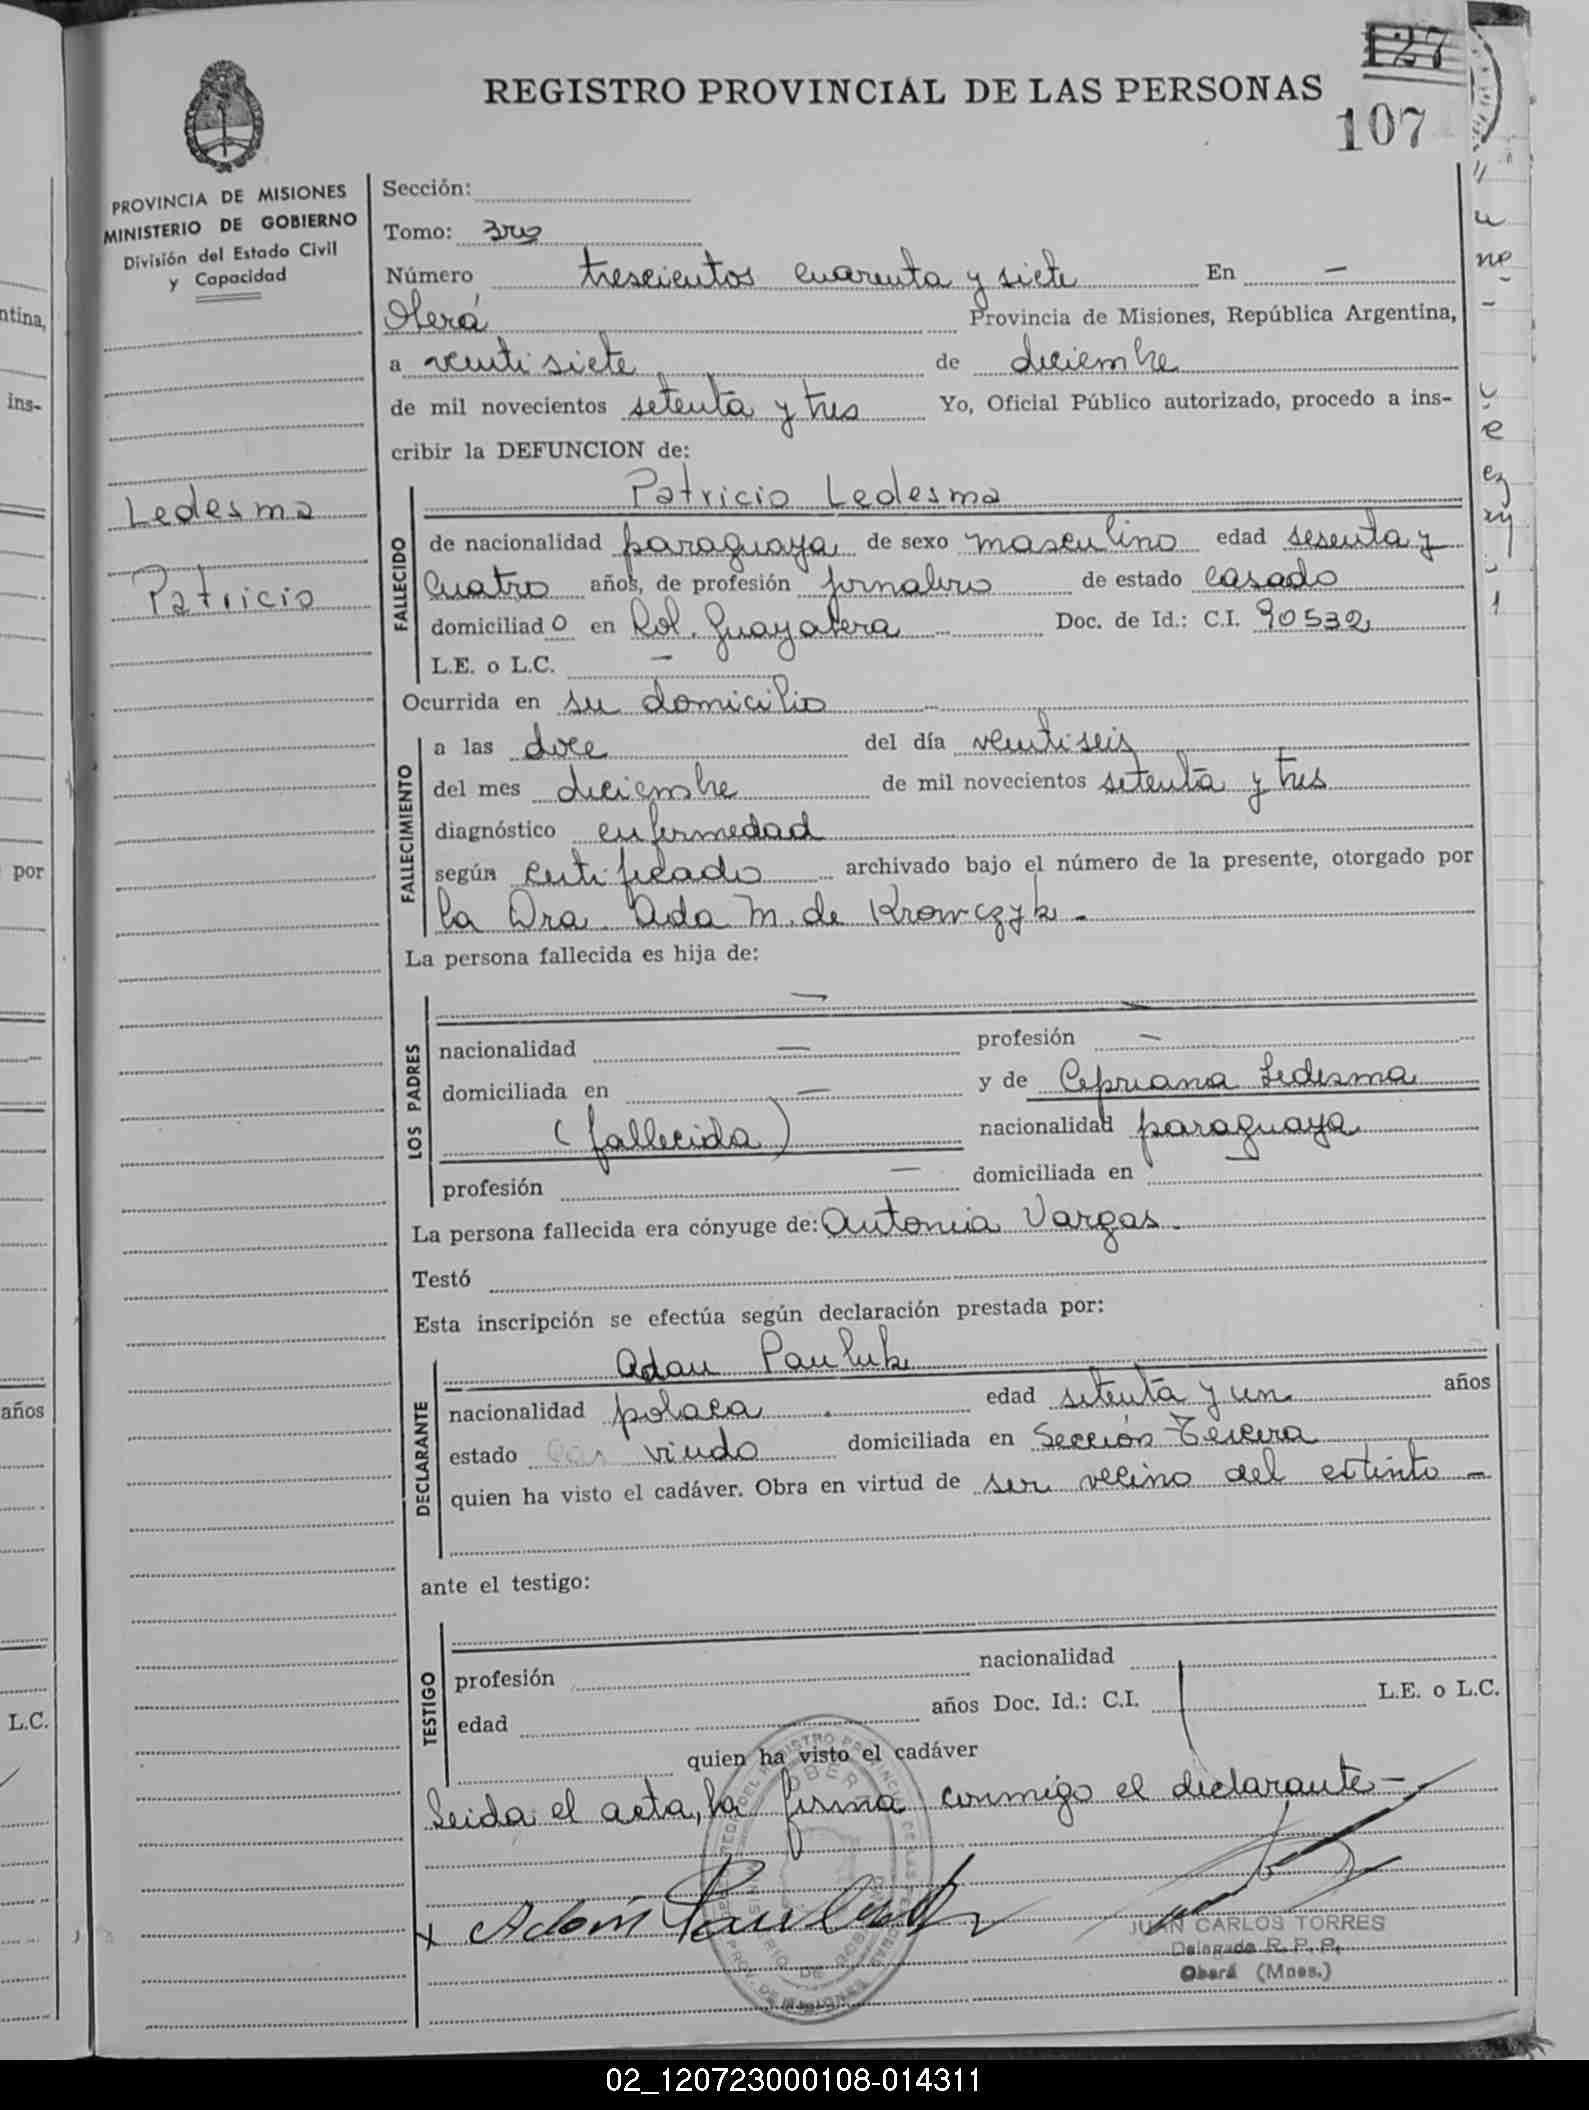 127
REGISTRO PROVINCIAL DE LAS PERSONAS
107
PROVINCIA DE MISIONES
MINISTERIO DE GOBIERNO
División del Estado Civil
y Capacidad
Ledesma
Patricio
Sección:
Tomo: 3ro
Número trescientos cuarenta y siete En —
Oberá Provincia de Misiones, República Argentina,
a veinti siete de diciembre
de mil novecientos setenta y tres Yo, Oficial Público autorizado, procedo a ins-
cribir la DEFUNCION de:
FALLECIDO
Patricio Ledesma
de nacionalidad paraguaya de sexo masculino edad sesenta y
cuatro años, de profesión jornalero de estado casado
domiciliado en Col. Guayabera — Doc. de Id.: C.I. 90532
L.E. o L.C. —
Ocurrida en su domicilio
FALLECIMIENTO
a las doce del día veintiseis
del mes diciembre de mil novecientos setenta y tres
diagnóstico enfermedad
según certificado archivado bajo el número de la presente, otorgado por
la Dra. Ada M. de Krowczyk -
La persona fallecida es hija de:
LOS PADRES
— —
nacionalidad — profesión —
domiciliada en — y de Cepriana Ledesma
(fallecida) nacionalidad paraguaya
profesión — domiciliada en
La persona fallecida era cónyuge de: Antonia Vargas.
Testó
Esta inscripción se efectúa según declaración prestada por:
DECLARANTE
Adan Pauluk
nacionalidad polaca edad setenta y un años
estado cas viudo domiciliada en Sección Tercera
quien ha visto el cadáver. Obra en virtud de ser vecino del extinto —
ante el testigo:
TESTIGO
profesión nacionalidad
edad años Doc. Id.: C.I. L.E. o L.C.
quien ha visto el cadáver
Leida el acta, la firma conmigo el declarante —
x Adam Pauluk
JUAN CARLOS TORRES
Delegado R. P. P.
Oberá (Mnes.)
ntina,
ins-
por
años
L.C.
02_120723000108-014311